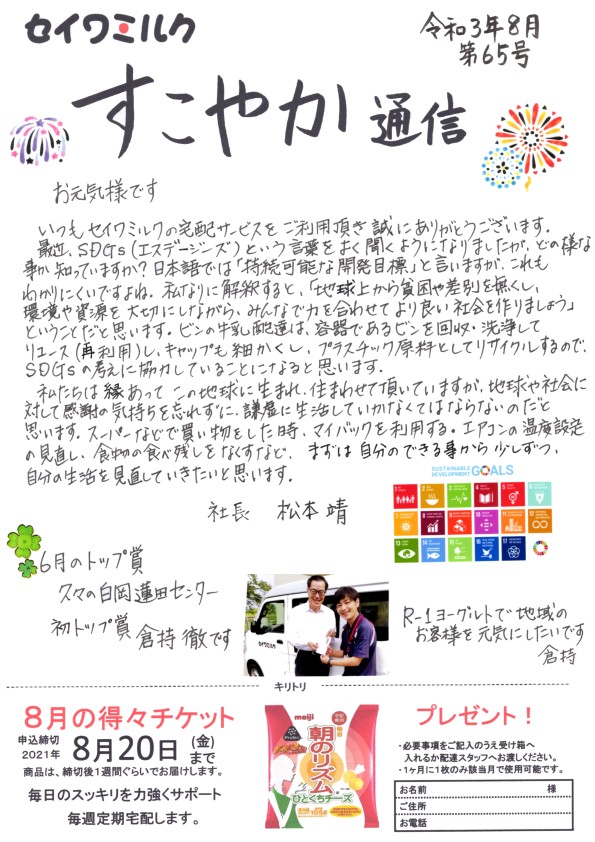 セイワミルク
令和3年8月
第65号
すこやか通信
お元気様です
いつもセイワミルクの宅配サービスをご利用頂き誠にありがとうございます。
最近、SDGs(エスデージーズ)という言葉をよく聞くようになりましたが、どの様な
事か知っていますか?日本語では「持続可能な開発目標」と言いますが、これも
わかりにくいですよね。私なりに解釈すると、「地球上から貧困や差別を無くし、
環境や資源を大切にしながら、みんなで力を合わせてより良い社会を作りましょう」
ということだと思います。ビンの牛乳配達は、容器であるビンを回収・洗浄して
リユース(再利用)し、キャップも細かくし、プラスチック原料としてリサイクルするので、
SDGsの考えに協力していることになると思います。
私たちは縁あってこの地球に生まれ、住まわせて頂いていますが、地球や社会に
対して感謝の気持ちを忘れずに、謙虚に生活していかなくてはならないのだと
思います。スーパーなどで買い物をした時、マイバックを利用する。エアコンの温度設定
の見直し、食物の食べ残しをなくすなど、まずは自分のできる事から少しずつ、
自分の生活を見直していきたいと思います。
社長 松本 靖
SUSTAINABLE
DEVELOPMENT GOALS
6月のトップ賞
久々の白岡蓮田センター
初トップ賞 倉持 徹です
セイワミルク
R-1ヨーグルトで地域の
お客様を元気にしたいです
倉持
キリトリ
8月の得々チケット
申込締切
2021年 8月20日(金)まで
商品は、締切後1週間ぐらいでお届けします。
毎日のスッキリを力強くサポート
毎週定期宅配します。
meiji
朝のリズム
ひとくちチーズ
プレゼント!
・必要事項をご記入のうえ受け箱へ
入れるか配達スタッフへお渡しください。
・1ヶ月に1枚のみ該当月で使用可能です。
お名前 様
ご住所
お電話